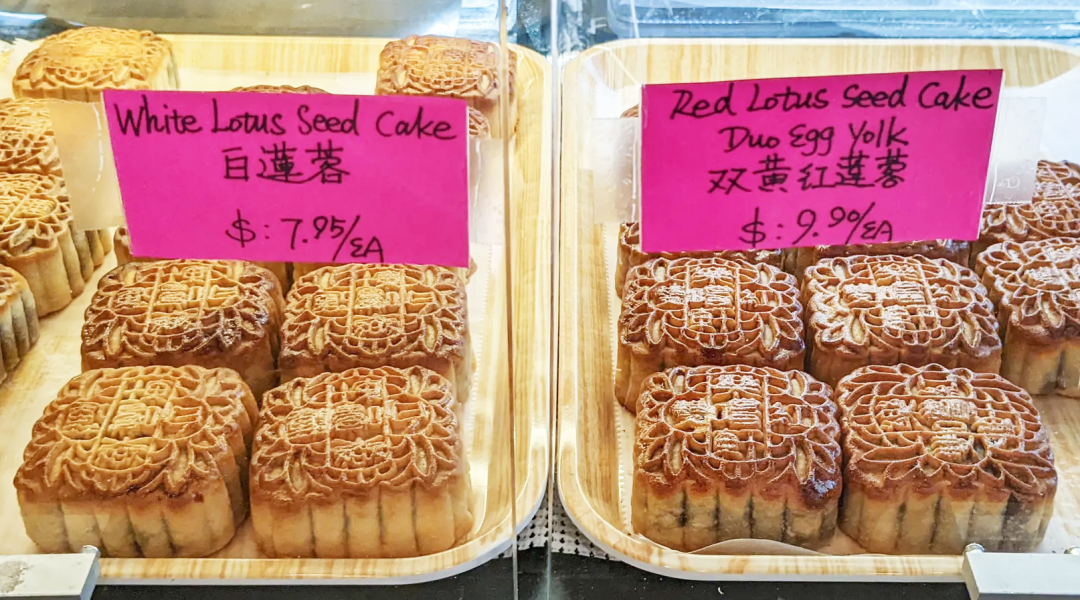 White Lotus Seed Cake
白蓮蓉
$: 7.95/EA
Red Lotus Seed Cake
Duo Egg Yolk
双黄红莲蓉
$: 9.90/EA